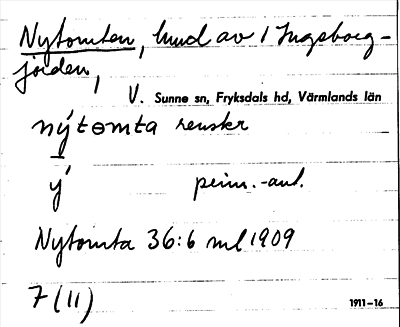 Nytomten, hmd av 1 Ingeborg-
jorden,
V. Sunne sn, Fryksdals hd, Värmlands län
nýtɵmta renskr
ý prim.-ant.
Nytomta 36:6 ml 1909
7 (11) 1911-16